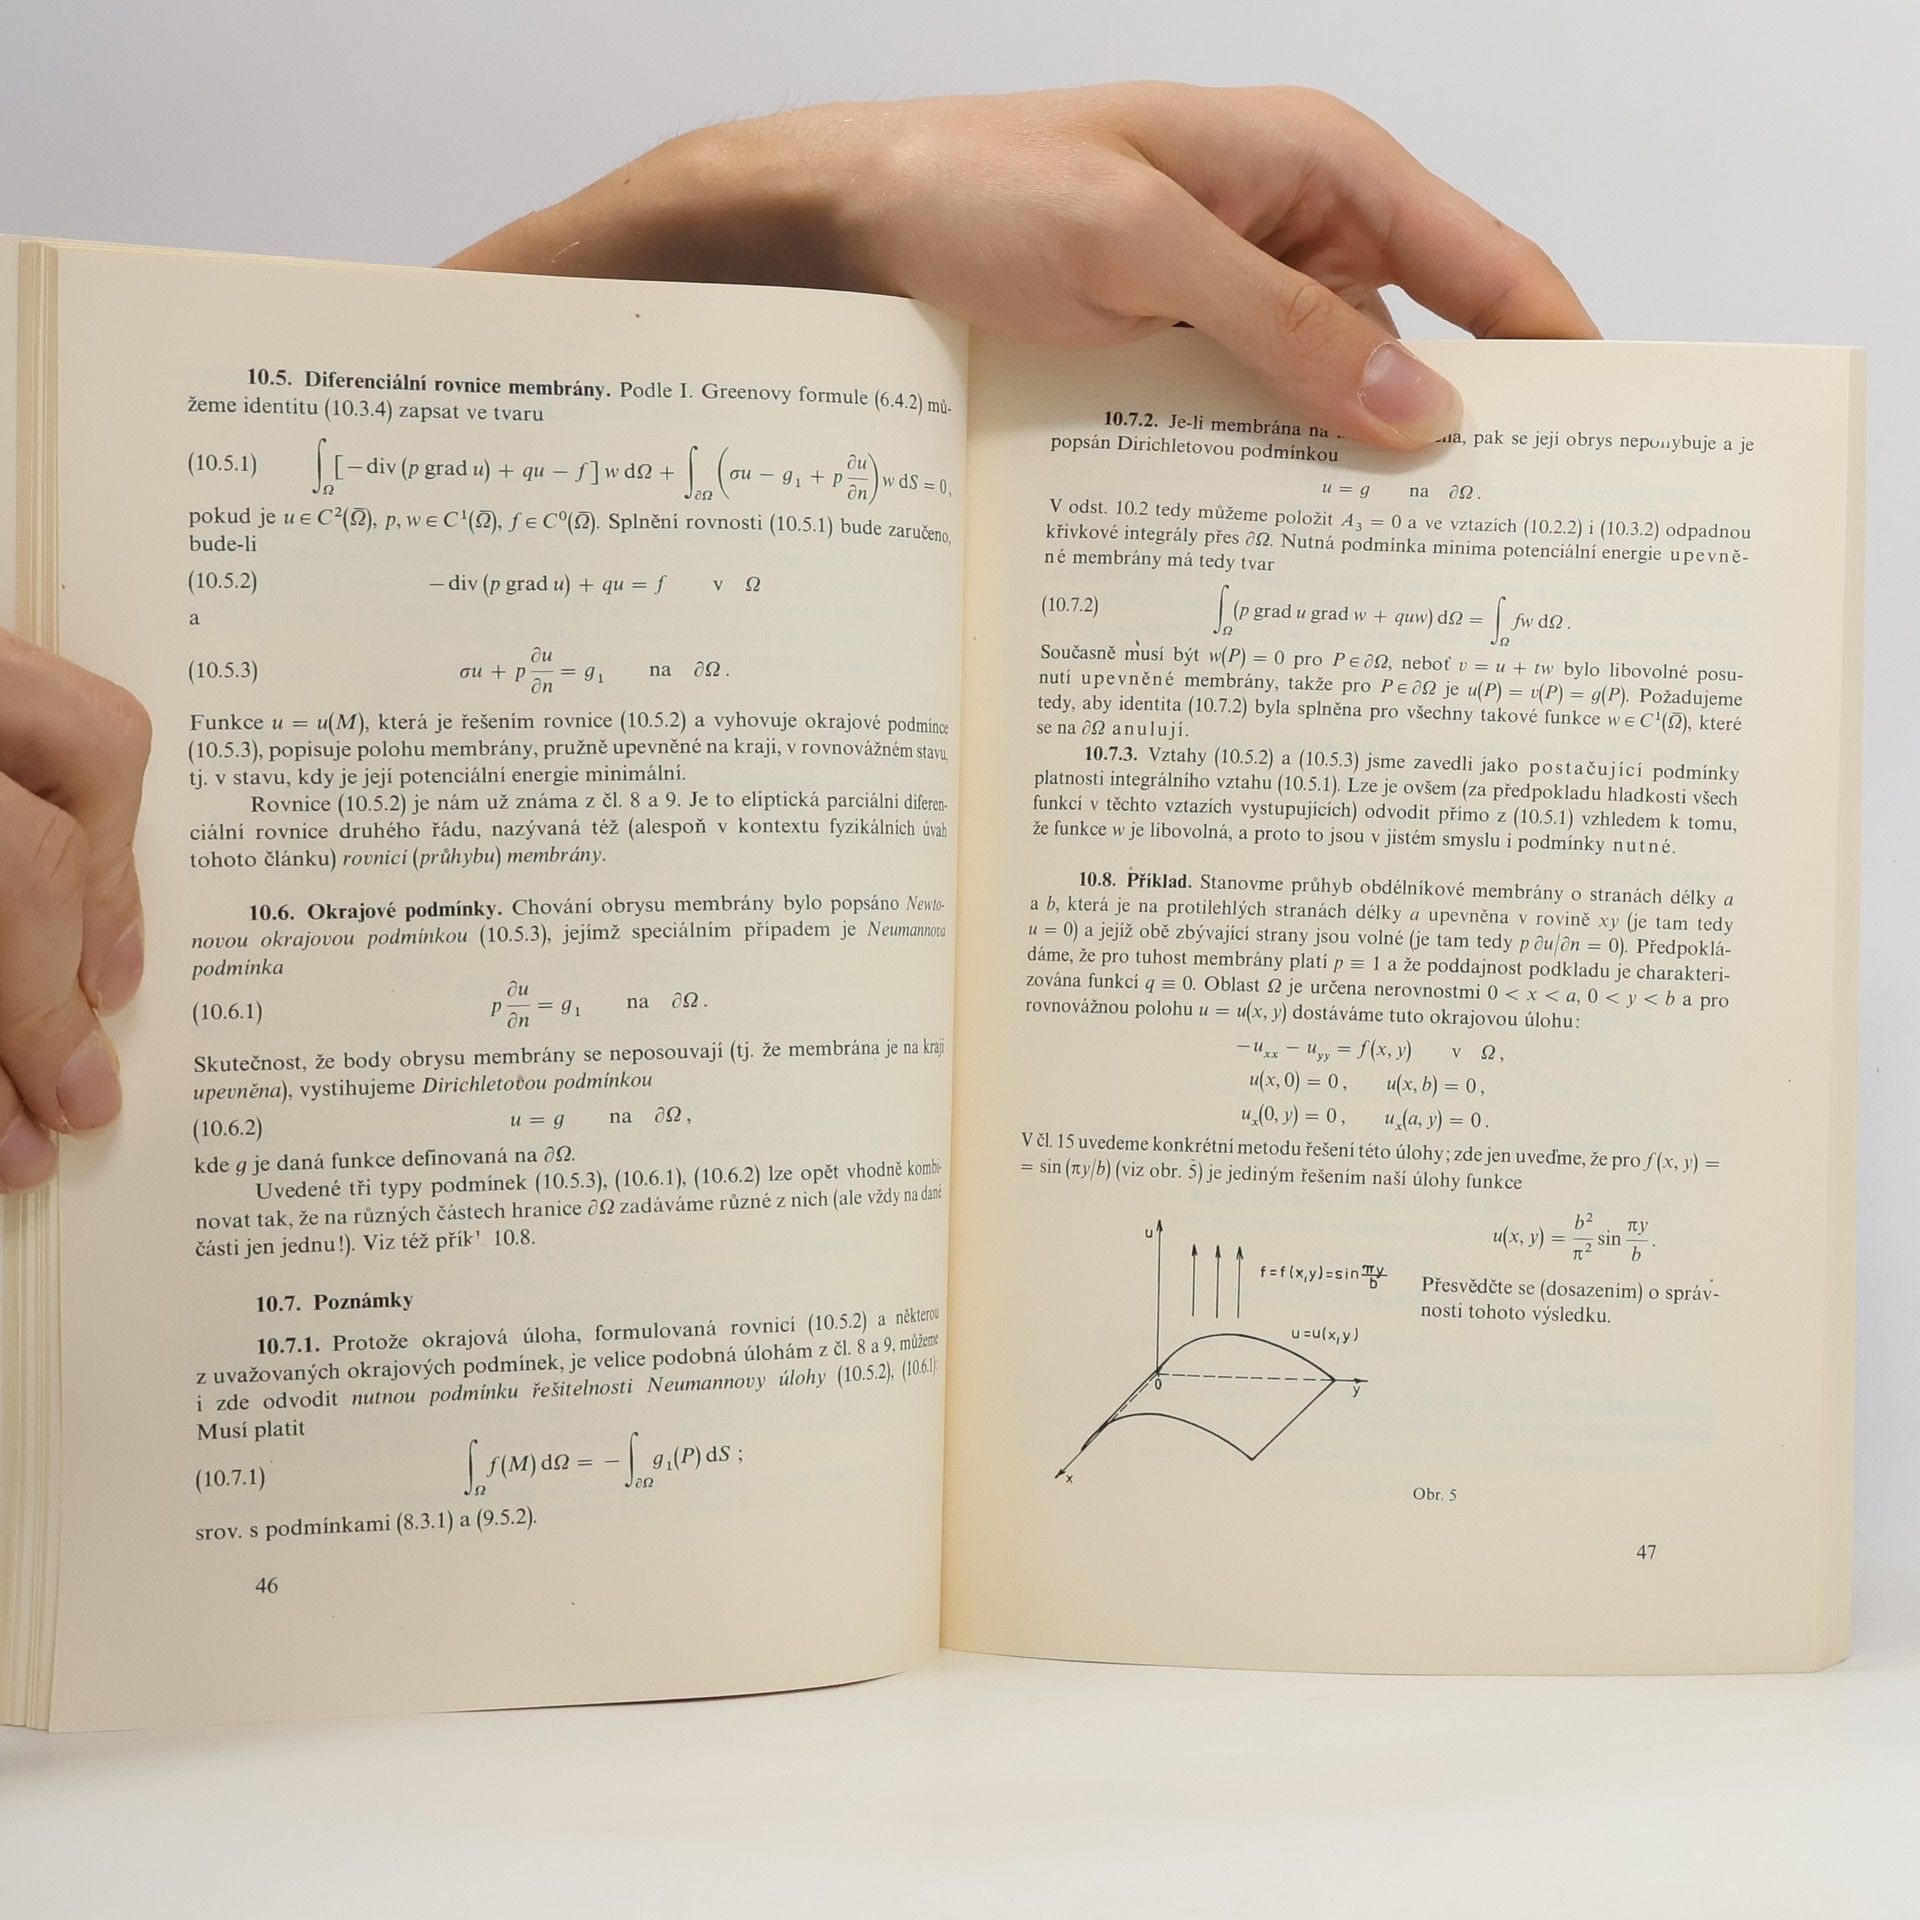 10.5. Diferenciální rovnice membrány. Podle I. Greenovy formule (6.4.2) mů-
žeme identitu (10.3.4) zapsat ve tvaru
(10.5.1) ∫_Ω [−div (p grad u) + qu − f] w dΩ + ∫_∂Ω (σu − g₁ + p ∂u/∂n) w dS = 0,
pokud je u ∈ C²(Ω̄), p, w ∈ C¹(Ω̄), f ∈ C⁰(Ω̄). Splnění rovnosti (10.5.1) bude zaručeno,
bude-li
(10.5.2) −div (p grad u) + qu = f v Ω
a
(10.5.3) σu + p ∂u/∂n = g₁ na ∂Ω.
Funkce u = u(M), která je řešením rovnice (10.5.2) a vyhovuje okrajové podmínce
(10.5.3), popisuje polohu membrány, pružně upevněné na kraji, v rovnovážném stavu,
tj. v stavu, kdy je její potenciální energie minimální.
Rovnice (10.5.2) je nám už známa z čl. 8 a 9. Je to eliptická parciální diferen-
ciální rovnice druhého řádu, nazývaná též (alespoň v kontextu fyzikálních úvah
tohoto článku) rovnicí (průhybu) membrány.
10.6. Okrajové podmínky. Chování obrysu membrány bylo popsáno Newto-
novou okrajovou podmínkou (10.5.3), jejímž speciálním případem je Neumannova
podmínka
(10.6.1) p ∂u/∂n = g₁ na ∂Ω.
Skutečnost, že body obrysu membrány se neposouvají (tj. že membrána je na kraji
upevněna), vystihujeme Dirichletovou podmínkou
(10.6.2) u = g na ∂Ω,
kde g je daná funkce definovaná na ∂Ω.
Uvedené tři typy podmínek (10.5.3), (10.6.1), (10.6.2) lze opět vhodně kombi-
novat tak, že na různých částech hranice ∂Ω zadáváme různé z nich (ale vždy na dané
části jen jednu!). Viz též 10.8.
10.7. Poznámky
10.7.1. Protože okrajová úloha, formulovaná rovnicí (10.5.2) a některou
z uvažovaných okrajových podmínek, je velice podobná úlohám z čl. 8 a 9, můžeme
i zde odvodit nutnou podmínku řešitelnosti Neumannovy úlohy (10.5.2), (10.6.1):
Musí platit
(10.7.1) ∫_Ω f(M) dΩ = − ∫_∂Ω g₁(P) dS ;
srov. s podmínkami (8.3.1) a (9.5.2).
46
10.7.2. Je-li membrána na pak se její obrys nepohybuje a je
popsán Dirichletovou podmínkou
u = g na ∂Ω.
V odst. 10.2 tedy můžeme položit A₃ = 0 a ve vztazích (10.2.2) i (10.3.2) odpadnou
křivkové integrály přes ∂Ω. Nutná podmínka minima potenciální energie upevně-
né membrány má tedy tvar
(10.7.2) ∫_Ω (p grad u grad w + quw) dΩ = ∫_Ω fw dΩ.
Současně musí být w(P) = 0 pro P ∈ ∂Ω, neboť v = u + tw bylo libovolné posu-
nutí upevněné membrány, takže pro P ∈ ∂Ω je u(P) = v(P) = g(P). Požadujeme
tedy, aby identita (10.7.2) byla splněna pro všechny takové funkce w ∈ C¹(Ω̄), které
se na ∂Ω anulují.
10.7.3. Vztahy (10.5.2) a (10.5.3) jsme zavedli jako postačující podmínky
platnosti integrálního vztahu (10.5.1). Lze je ovšem (za předpokladu hladkosti všech
funkcí v těchto vztazích vystupujících) odvodit přímo z (10.5.1) vzhledem k tomu,
že funkce w je libovolná, a proto to jsou v jistém smyslu i podmínky nutné.
10.8. Příklad. Stanovme průhyb obdélníkové membrány o stranách délky a
a b, která je na protilehlých stranách délky a upevněna v rovině xy (je tam tedy
u = 0) a jejíž obě zbývající strany jsou volné (je tam tedy p ∂u/∂n = 0). Předpoklá-
dáme, že pro tuhost membrány platí p ≡ 1 a že poddajnost podkladu je charakteri-
zována funkcí q ≡ 0. Oblast Ω je určena nerovnostmi 0 < x < a, 0 < y < b a pro
rovnovážnou polohu u = u(x, y) dostáváme tuto okrajovou úlohu:
−u_xx − u_yy = f(x, y) v Ω,
u(x, 0) = 0, u(x, b) = 0,
u_x(0, y) = 0, u_x(a, y) = 0.
V čl. 15 uvedeme konkrétní metodu řešení této úlohy; zde jen uveďme, že pro f(x, y) =
= sin (πy/b) (viz obr. 5) je jediným řešením naší úlohy funkce
u(x, y) = b²/π² sin πy/b.
Přesvědčte se (dosazením) o správ-
nosti tohoto výsledku.
u
f=f(x,y)=sin πy/b
u=u(x,y)
0
y
x
Obr. 5
47